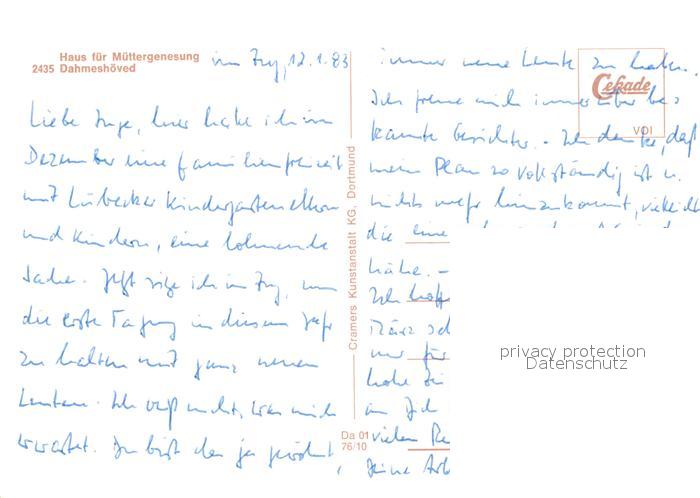 Haus für Müttergenesung
2435 Dahmeshöved
im Zug, 12.1.83
Liebe Inge, hier habe ich im
Dezember eine Familienfreizeit
mit Lübecker Kindergarteneltern
und Kindern, eine lohnende
Sache. Jetzt sitze ich im Zug, um
die erste Tagung in diesem Jahr
zu halten mit ganz neuen
Leuten. Ich weiß nicht, was mich
erwartet. Du bist das ja gewöhnt,
Cramers Kunstanstalt KG, Dortmund
Da 01
76/10
immer neue Leute zu haben.
Ich freue mich immer über be-
kannte Gesichter. - Ich denke, daß
mein Plan so vollständig ist u.
nichts mehr hinzukommt,
die eine
hätte. -
Ich hoff
März
nur für
hohe
an Dich
vielen
Deine
Cekade
VOI
privacy protection
Datenschutz